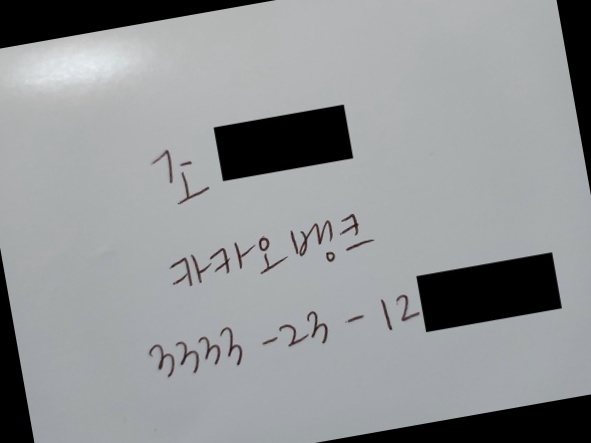 조
카카오뱅크
3333 - 23 - 12